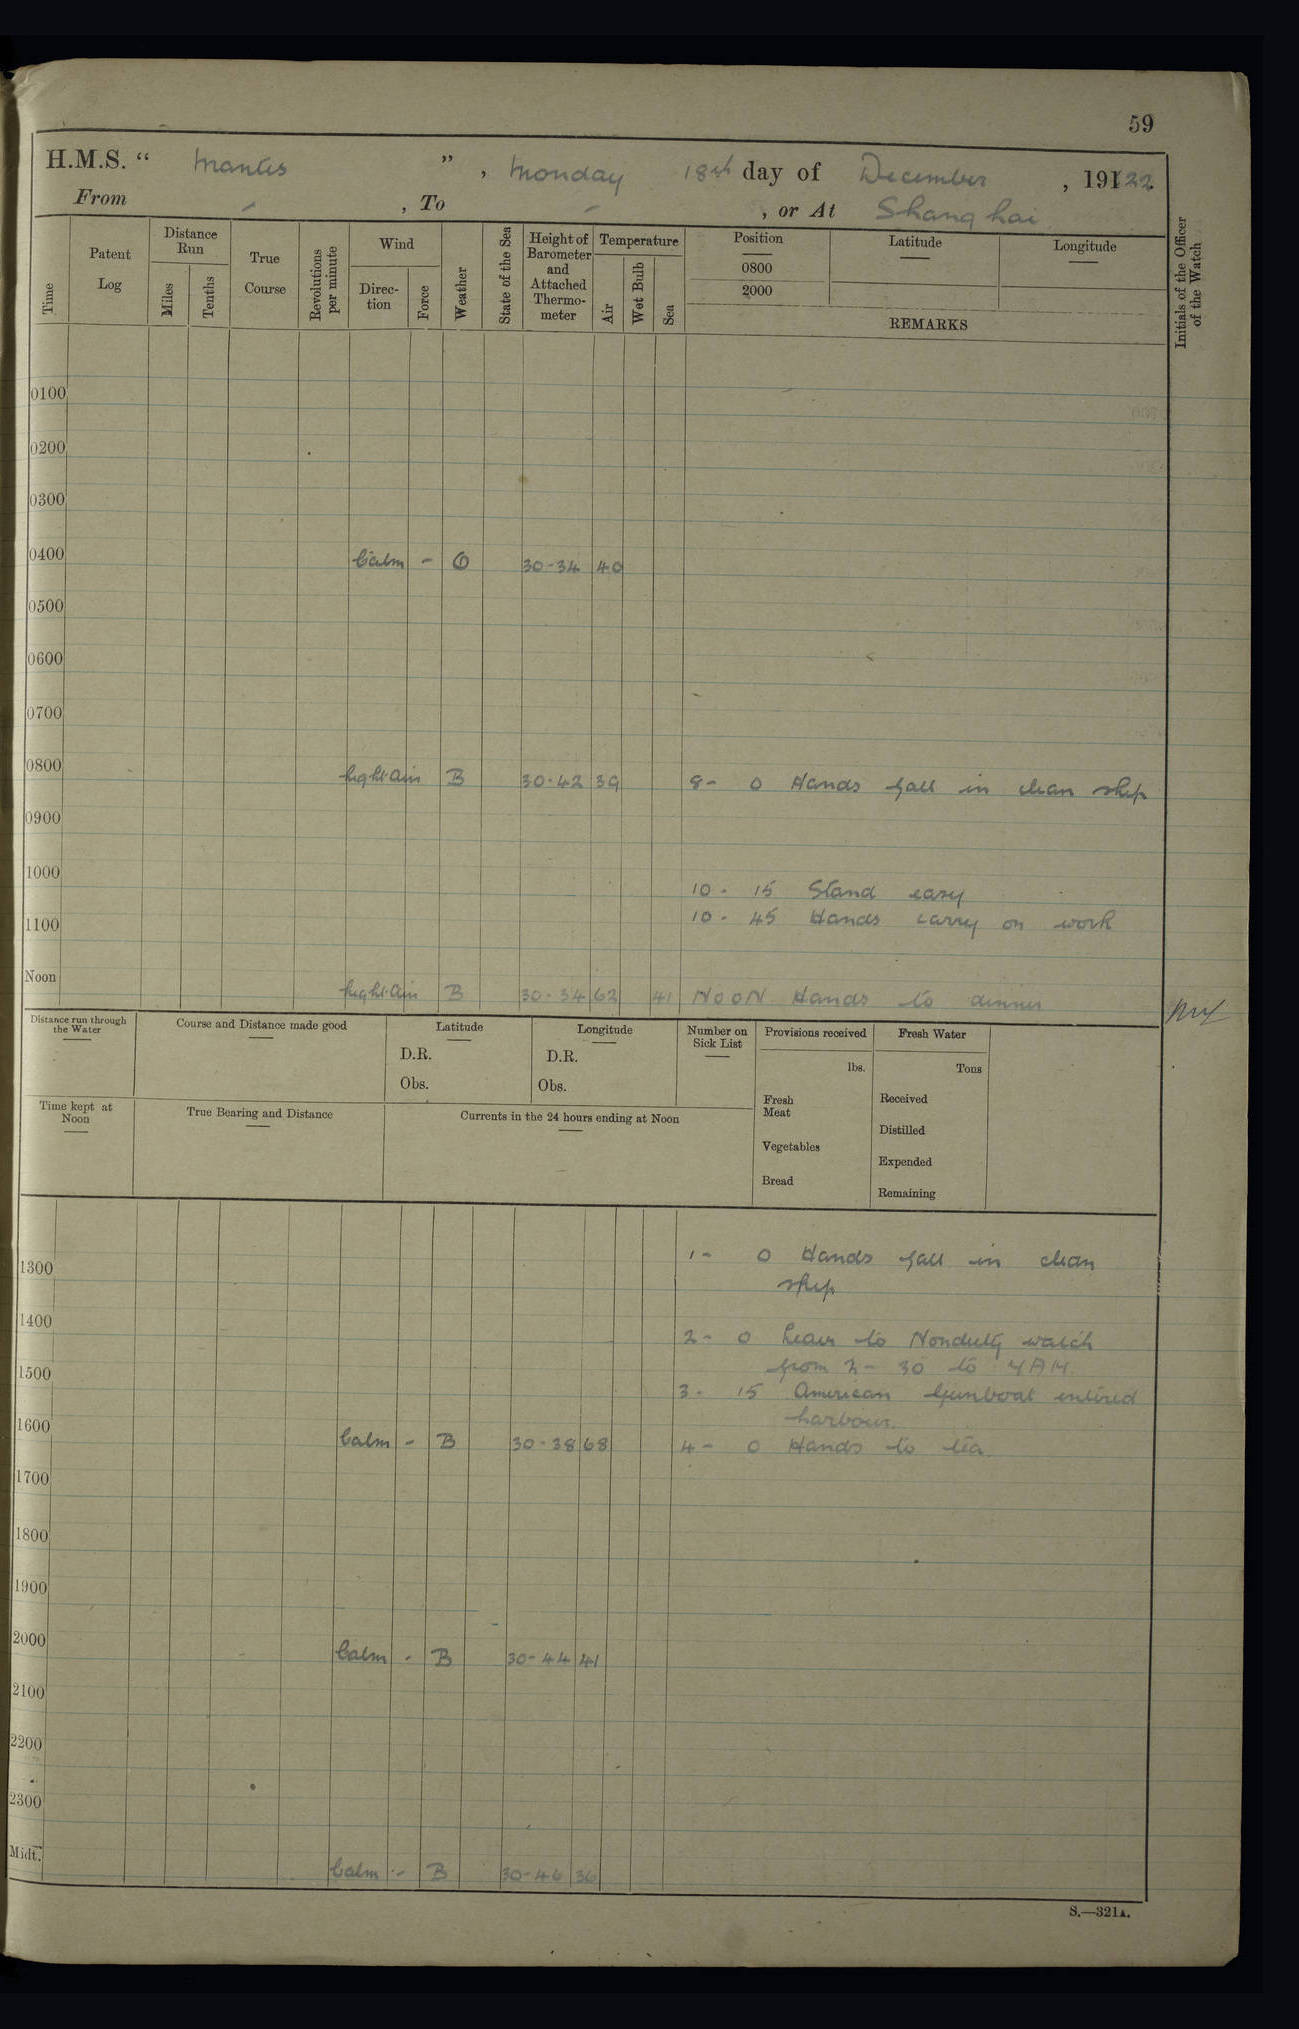 59
H.M.S. “ Mantis ” , Monday 18th day of December , 19122
From - , To - , or At Shanghai
Time
Patent Log
Distance Run
Miles
Tenths
True Course
Revolutions per minute
Wind
Direction
Force
Weather
State of the Sea
Height of Barometer and Attached Thermometer
Temperature
Air
Wet Bulb
Sea
Position
0800
2000
Latitude
Longitude
REMARKS
Initials of the Officer of the Watch
0100
0200
0300
0400 Calm - O 30-34 40
0500
0600
0700
0800 Light Airs B 30-42 39 8- 0 Hands fall in clean ship
0900
1000 10- 15 Stand easy
1100 10- 45 Hands carry on work
Noon Light Airs B 30-34 62 41 NOON Hands to dinner
Distance run through the Water
Course and Distance made good
Latitude
D.R.
Obs.
Longitude
D.R.
Obs.
Number on Sick List
Provisions received
lbs.
Fresh Meat
Vegetables
Bread
Fresh Water
Tons
Received
Distilled
Expended
Remaining
Time kept at Noon
True Bearing and Distance
Currents in the 24 hours ending at Noon
1300 1- 0 Hands fall in clean
ship
1400 2- 0 Leave to Nonduty watch
1500 from 2- 30 to 7AM.
3- 15 American Gunboat entered
harbour.
1600 Calm - B 30-38 68 4- 0 Hands to tea
1700
1800
1900
2000 Calm - B 30-44 41
2100
2200
2300
Midt. Calm - B 30-46 36
S.—321A.